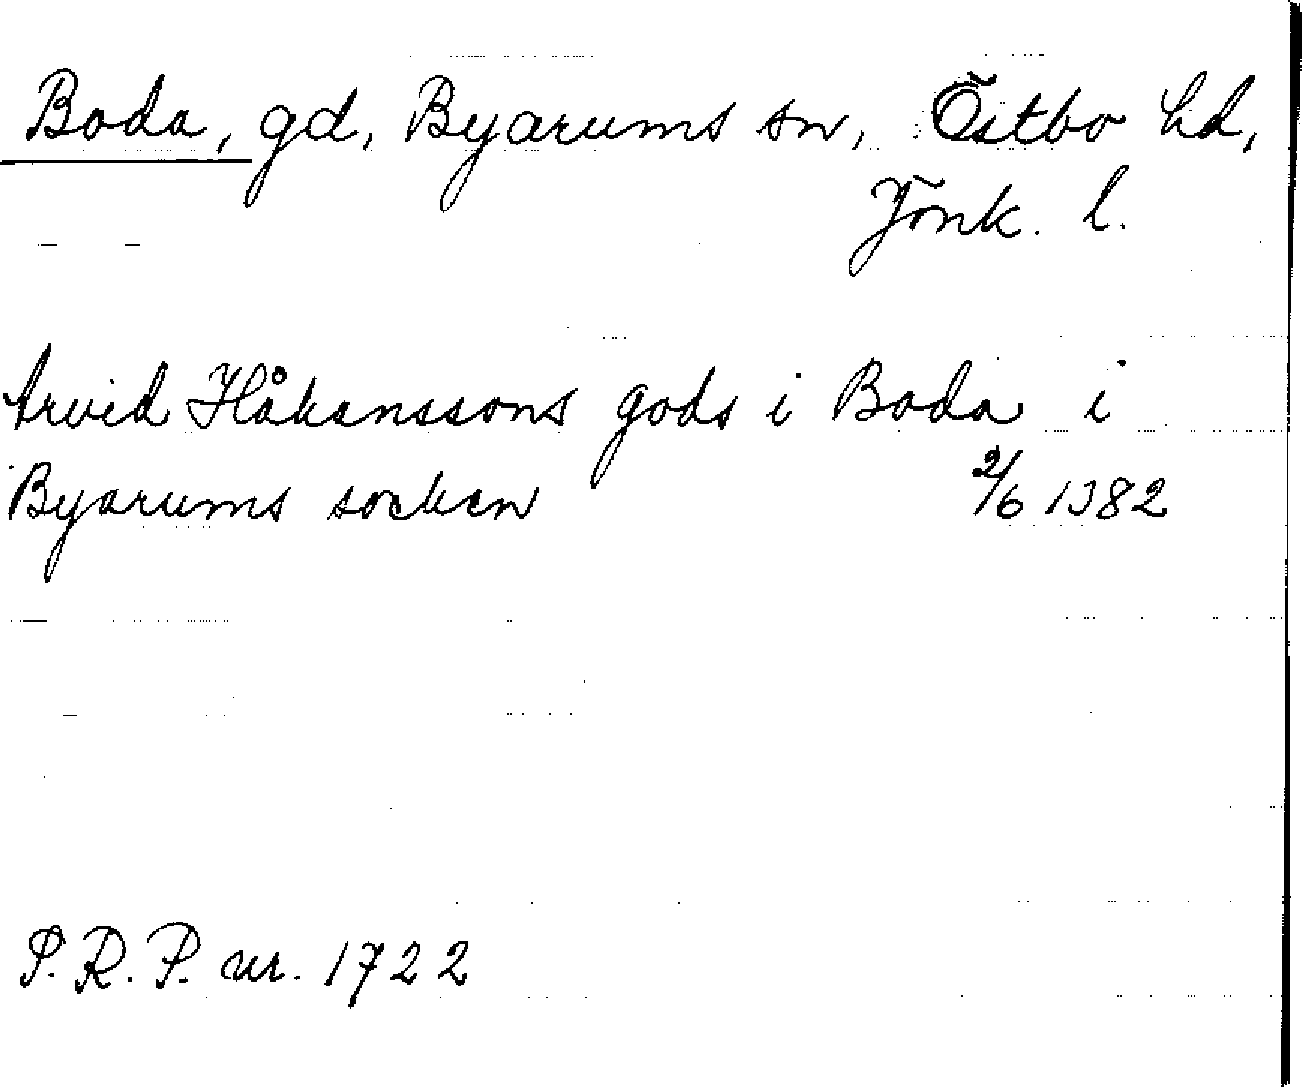 Boda, gd, Byarums sn, Östbo hd,
Jönk. l.
Arvid Håkanssons gods i Boda i
Byarums socken 2/6 1382
S.R.P. nr. 1722